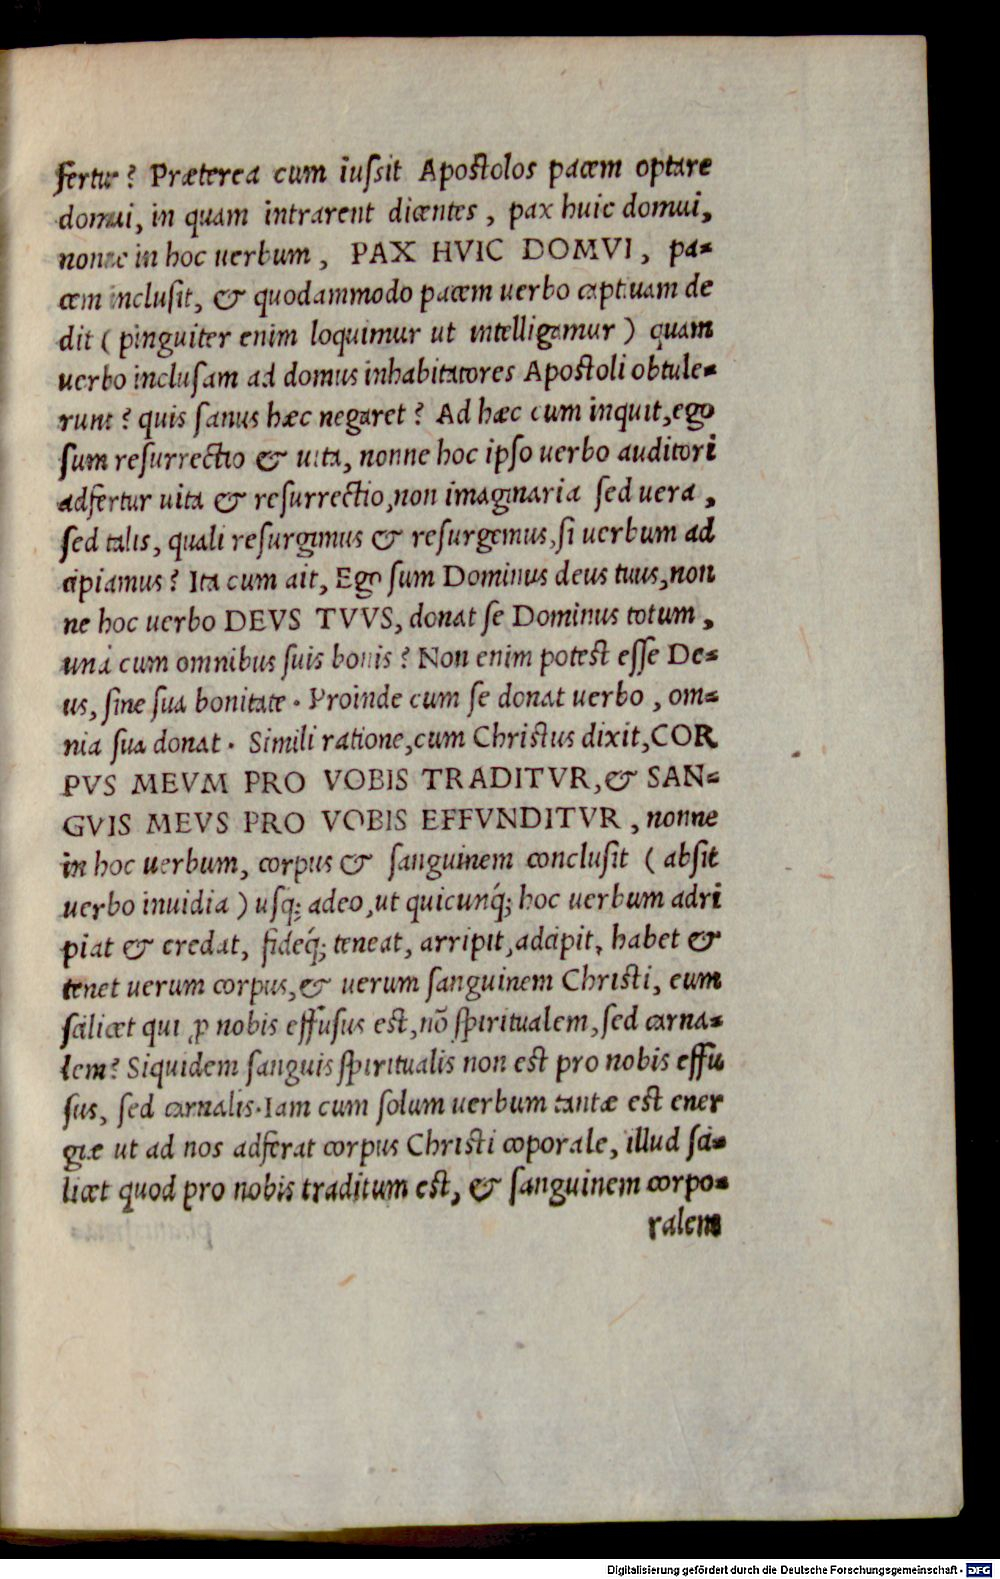 fertur? Præterea cum iussit Apostolos pacem optare
domui, in quam intrarent dicentes, pax huic domui,
nonne in hoc uerbum, PAX HVIC DOMVI, pa-
cem inclusit, & quodammodo pacem uerbo captiuam de
dit (pinguiter enim loquimur ut intelligamur) quam
uerbo inclusam ad domus inhabitatores Apostoli obtule-
runt? quis sanus hæc negaret? Ad hæc cum inquit, ego
sum resurrectio & uita, nonne hoc ipso uerbo auditori
adfertur uita & resurrectio, non imaginaria sed uera,
sed talis, quali resurgimus & resurgemus, si uerbum ad
cipiamus? Ita cum ait, Ego sum Dominus deus tuus, non
ne hoc uerbo DEVS TVVS, donat se Dominus totum,
unà cum omnibus suis bonis? Non enim potest esse De-
us, sine sua bonitate. Proinde cum se donat uerbo, om-
nia sua donat. Simili ratione, cum Christus dixit, COR
PVS MEVM PRO VOBIS TRADITVR, & SAN-
GVIS MEVS PRO VOBIS EFFVNDITVR, nonne
in hoc uerbum, corpus & sanguinem conclusit (absit
uerbo inuidia) usq; adeo, ut quicunq́; hoc uerbum adri
piat & credat, fideq́; teneat, arripit, adcipit, habet &
tenet uerum corpus, & uerum sanguinem Christi, eum
scilicet qui ꝓ nobis effusus est, nõ spiritualem, sed carna-
lem? Siquidem sanguis spiritualis non est pro nobis effu
sus, sed carnalis. Iam cum solum uerbum tantæ est ener
giæ ut ad nos adferat corpus Christi coporale, illud sci-
licet quod pro nobis traditum est, & sanguinem corpo-
ralem
Digitalisierung gefördert durch die Deutsche Forschungsgemeinschaft - DFG